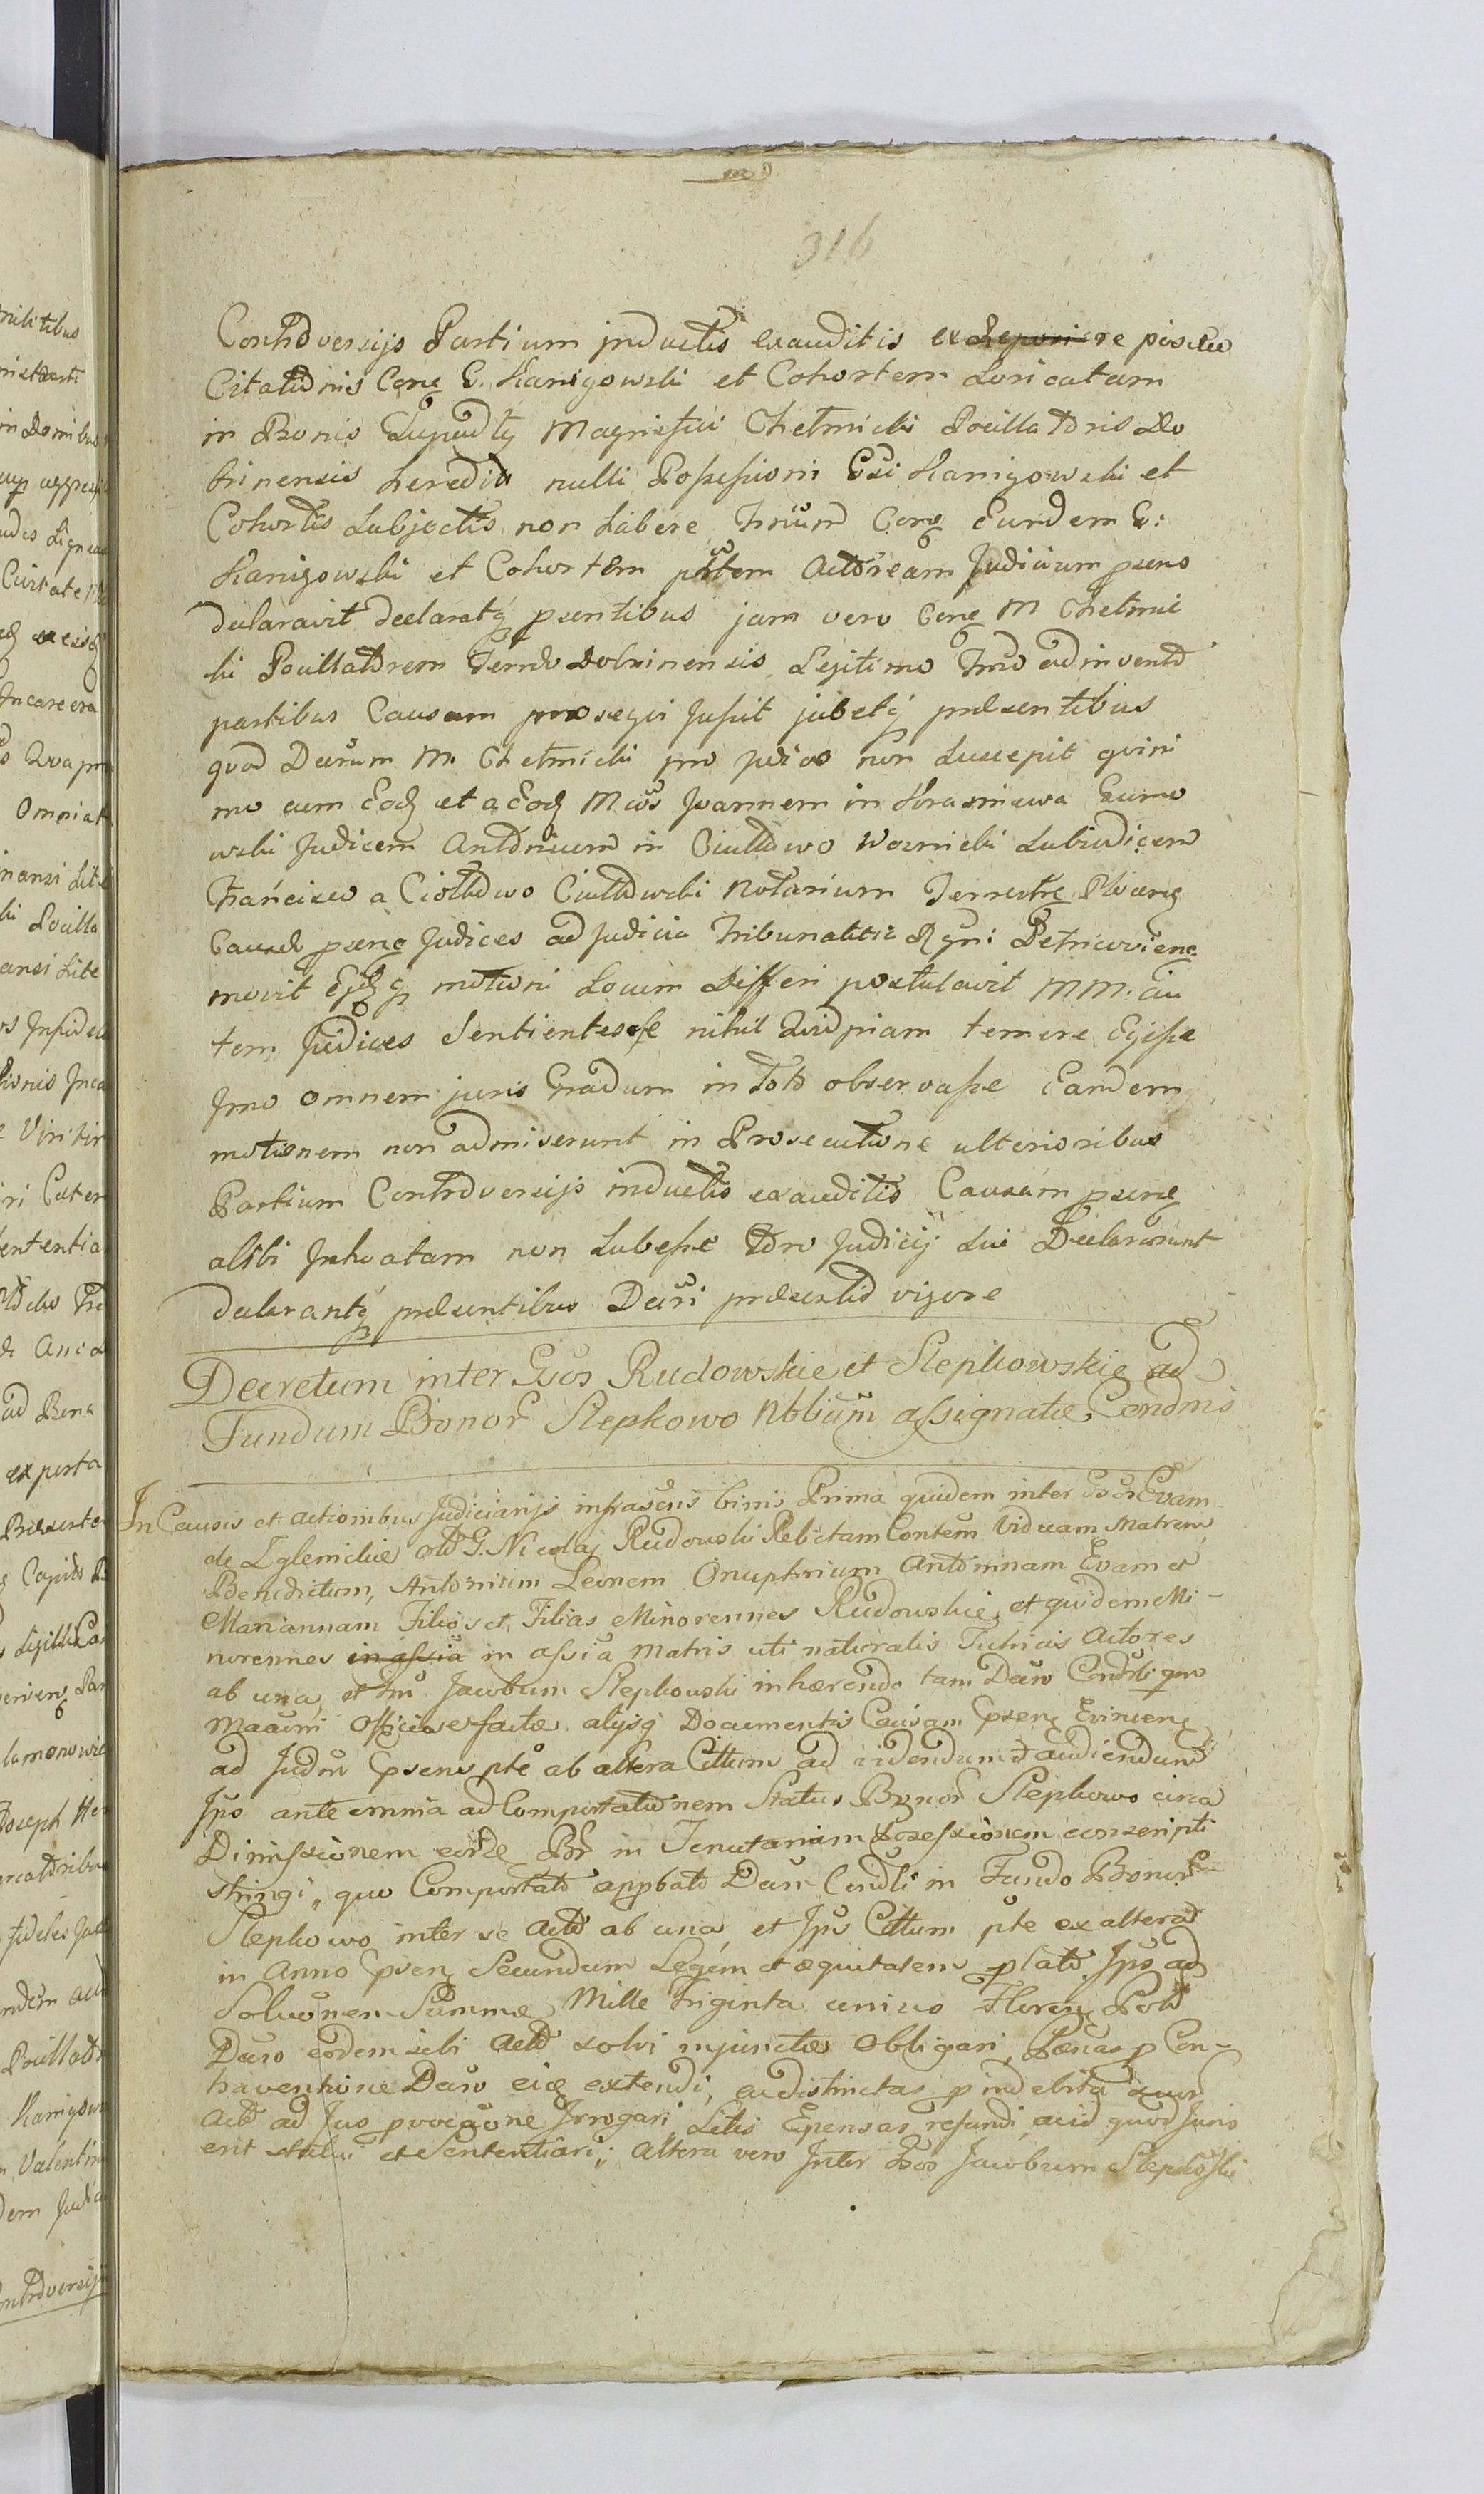 316
Controversijs Partium inductis exauditis ex re positae
Citationis Cone G. Kanigowski et Cohortem Loricatam
in Bonis Magnifici Chełmicki Pocillatoris Do
brinensis heredit nulli Possessioni Gsi Kanigowski et
Cohortis Subjectis non habere Gone Eundem G:
Kanigowski et Cohortem ptem Actoream Judicium psens
declaravit declaratq psentibus jam vero Cone M Chełmic
ki Pocillatorem Terrae Dobrinensis Legitimo Tmo adinvento
partibus Causam prosegvi Jussit jubetq praesentibus
quod Decrum M. Chełmicki pro non Suscepit qvini
mo cum Eodq et a Eodq Mcos Joannem in Krasniewa
wski Judicem Antonium in Woznicki Subjudicem
Francisco a Ciołkowo Ciołkowski Notarium Terrestrq Płocenq
Causae psenq Judices ad Judicia Tribunalitia Rgni Petricovienq
movit Ejdq q motioni Locum Differi postulavit MM. au
tem Judices Sentientes se nihil Qvidpiam temere Egisse
Jmo omnem juris Gradum in Toto observasse Eandem
motionem non admiserunt in Prosecutione ulterioribus
Partium Controversijs inductis exauditis Causam psenq
alibi non Subesse Foro Judicij Sui Declararunt
declarantq praesentibus Decri praesentis vigore
Decretum inter Gsos Rudowskie et Slepkowskie ad
Fundum Bonor Slepkowo Nbbium assignatae Condnis
In Causis et actionibus Judiciarijs infrascris binis Prima quidem inter Gsos Evam
de Zglenickie olt G. Nicolaj Rudowski Relictam Contem Viduam Matrem
Benedictum, Antonium Leonem Onuphrium Antoninam Evam et
Mariannam Filios et Filias Minorennes Rudowskie et quidem Mi-
norennes in assia in assia Matris uti naturalis Tutricis Actores
ab una, et Jacobum Slepkowski inhaerendo tam Decro Condli qm
officiose factae alijsq Documentis Causam psenq Evincenq
ad Judm psens pte ab altera Cittum ad videndum et audiendum
Jps ante omnia ad Comportationem Status Bonor Slepkowo circa
Dimissionem eorde Br in Tenutariam Possessionem conscripti
stringi, quo Comportato appbato Decm Condli in Fundo Bonor
Slepkowo inter se Acto ab una et Jps Cittum pte ex altera
in Anno psenq Secundum Legem et aequitatem plato Jps ad
Soluonem Summae Mille triginta unius Floren Pold
Decro eodem sibi Actd solvi injunctae obligari, Paenas p Con-
traventione Decro eiq extendi, ac distinctas p indebita
Actd ad Jus pvocaone Jrrogari Litis Expensas refundi, acid quod Juris
erit statui et Sententiari; Altera vero Inter Gsos Jacobum Slepkoski